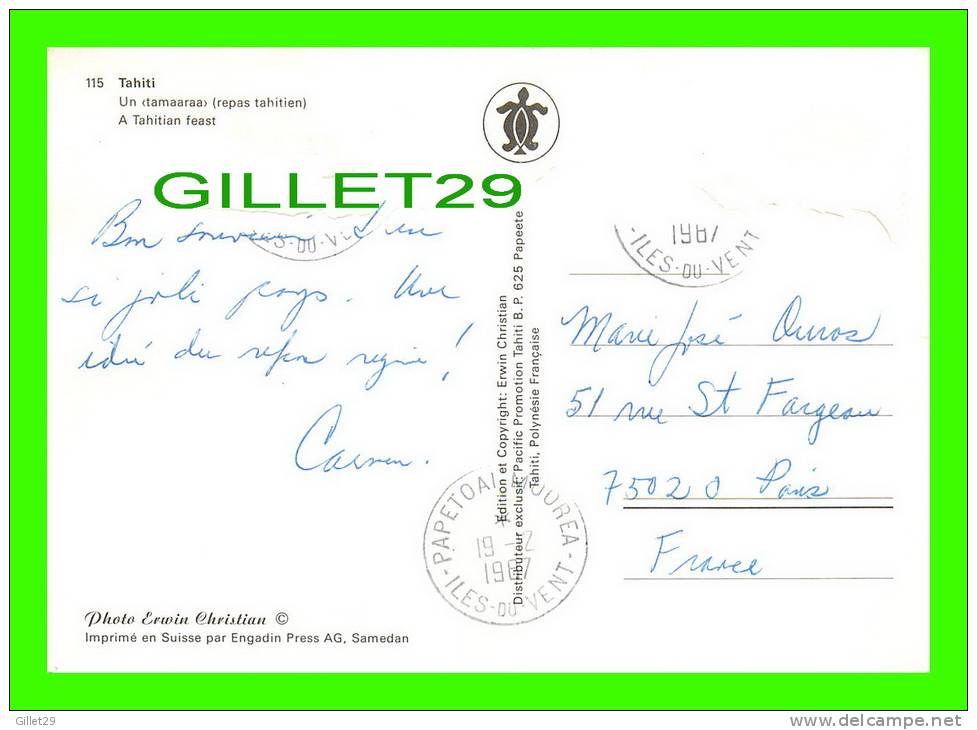 115 Tahiti
Un ‹tamaaraa› (repas tahitien)
A Tahitian feast
GILLET29
Bon souvenir d'un
si joli pays. Une
idée du repas !
Carmen.
Edition et Copyright: Erwin Christian
Distributeur exclusif: Pacific Promotion Tahiti B. P. 625 Papeete
Tahiti, Polynésie Française
ILES-DU-VENT
1967
-ILES-DU-VENT
Marie José
51 rue St Fargeau
75020 Paris
France
PAPETOAI-MOOREA
19-2
1967
-ILES-DU-VENT-
Photo Erwin Christian ©
Imprimé en Suisse par Engadin Press AG, Samedan
Gillet29
www.delcampe.net